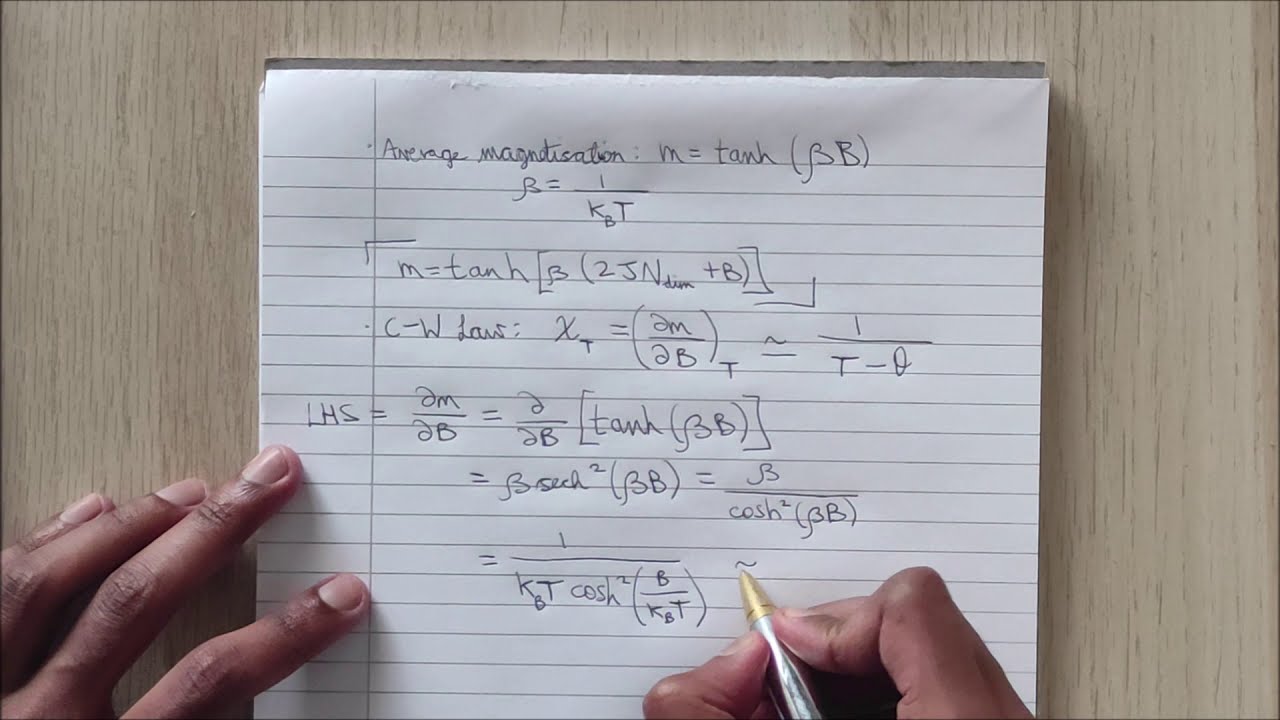 · Average magnetisation: m = tanh (βB)
β = 1/(K_B T)
m = tanh [β (2JN_dim + B)]
· C-W Law: χ_T = (∂m/∂B)_T ≃ 1/(T - θ)
LHS = ∂m/∂B = ∂/∂B [tanh (βB)]
= β sech² (βB) = β/cosh² (βB)
= 1/(K_B T cosh² (B/(K_B T))) ~